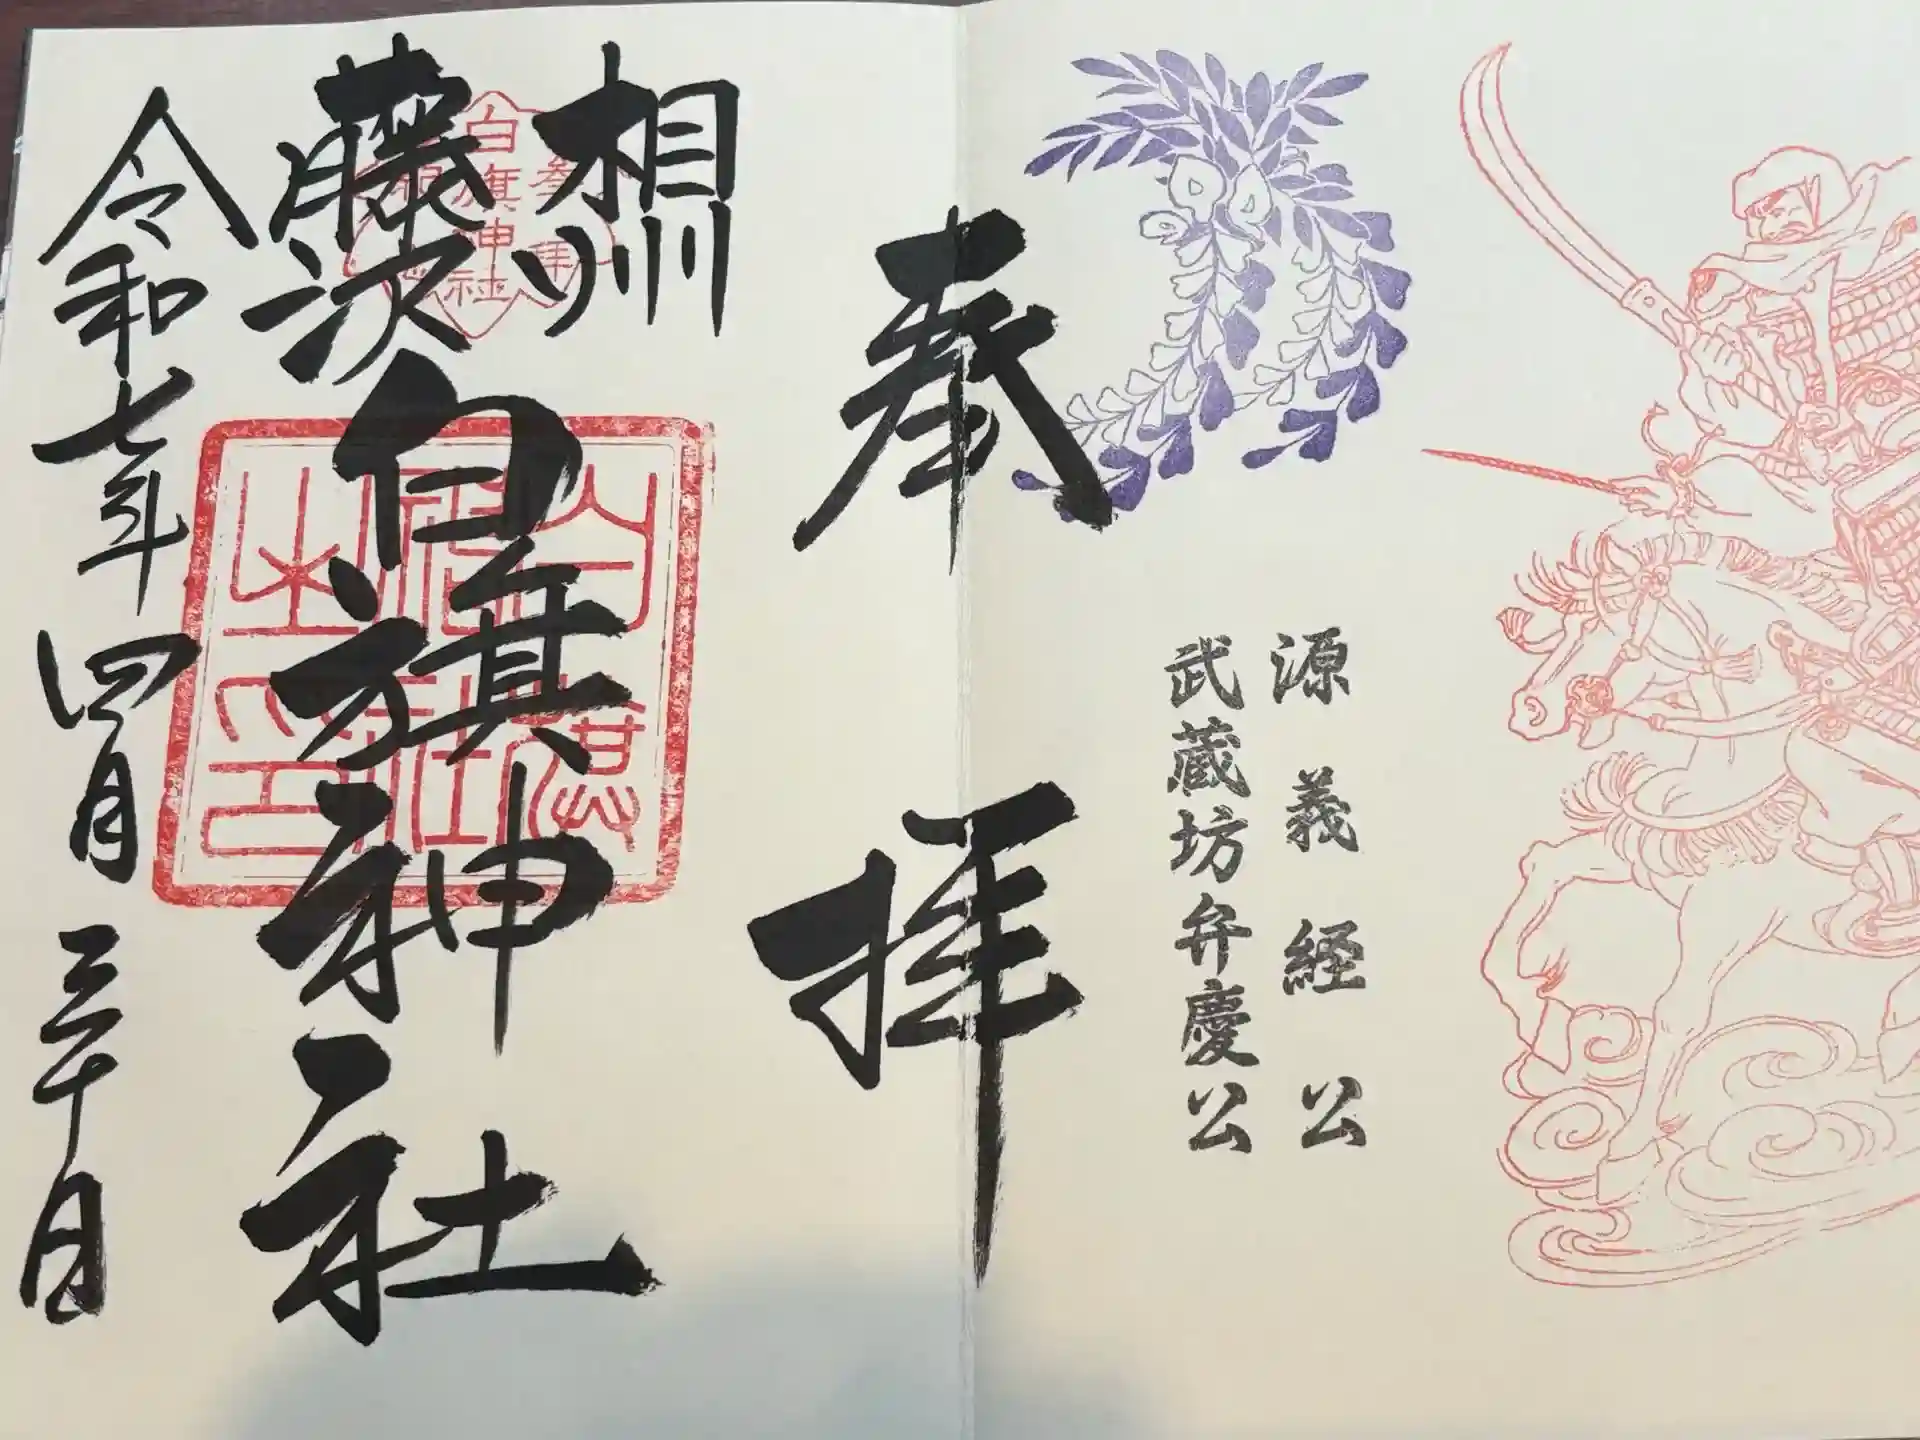 源義経公
武蔵坊弁慶公
奉拝
相州
藤沢
白旗神社
令和七年四月三十日
白旗神社